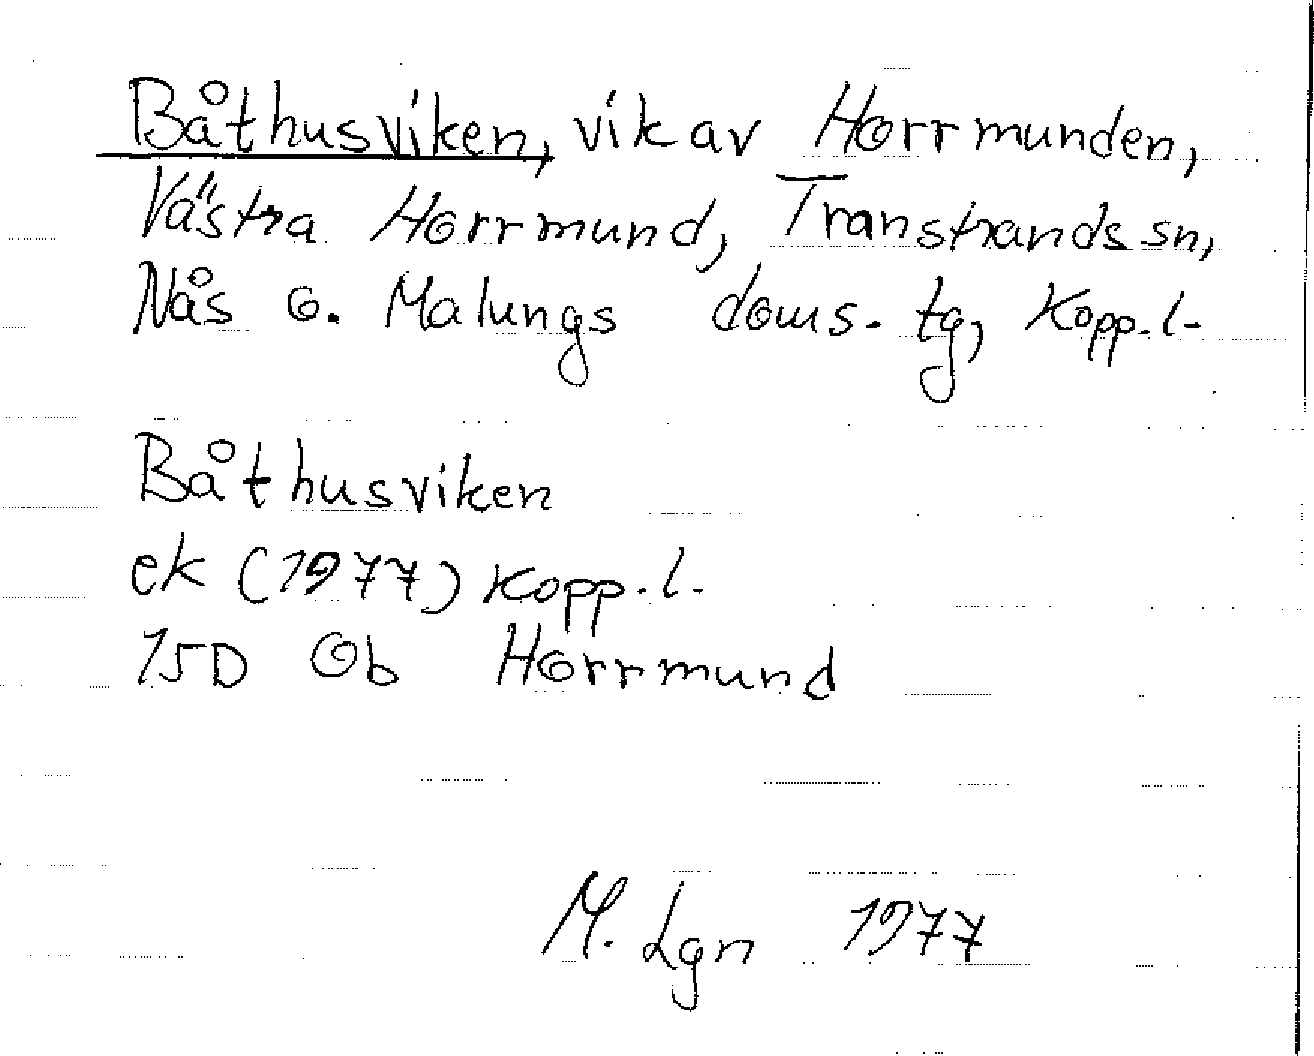 Båthusviken, vik av Horrmunden,
Västra Horrmund, Transtrands sn,
Nås o. Malungs doms. tg, Kopp. l.
Båthusviken
ek (1977) Kopp. l.
15D 0b Horrmund
M. Lgn 1977